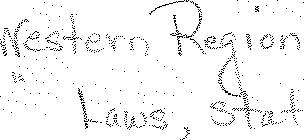 Western Region
" Laws, Stat